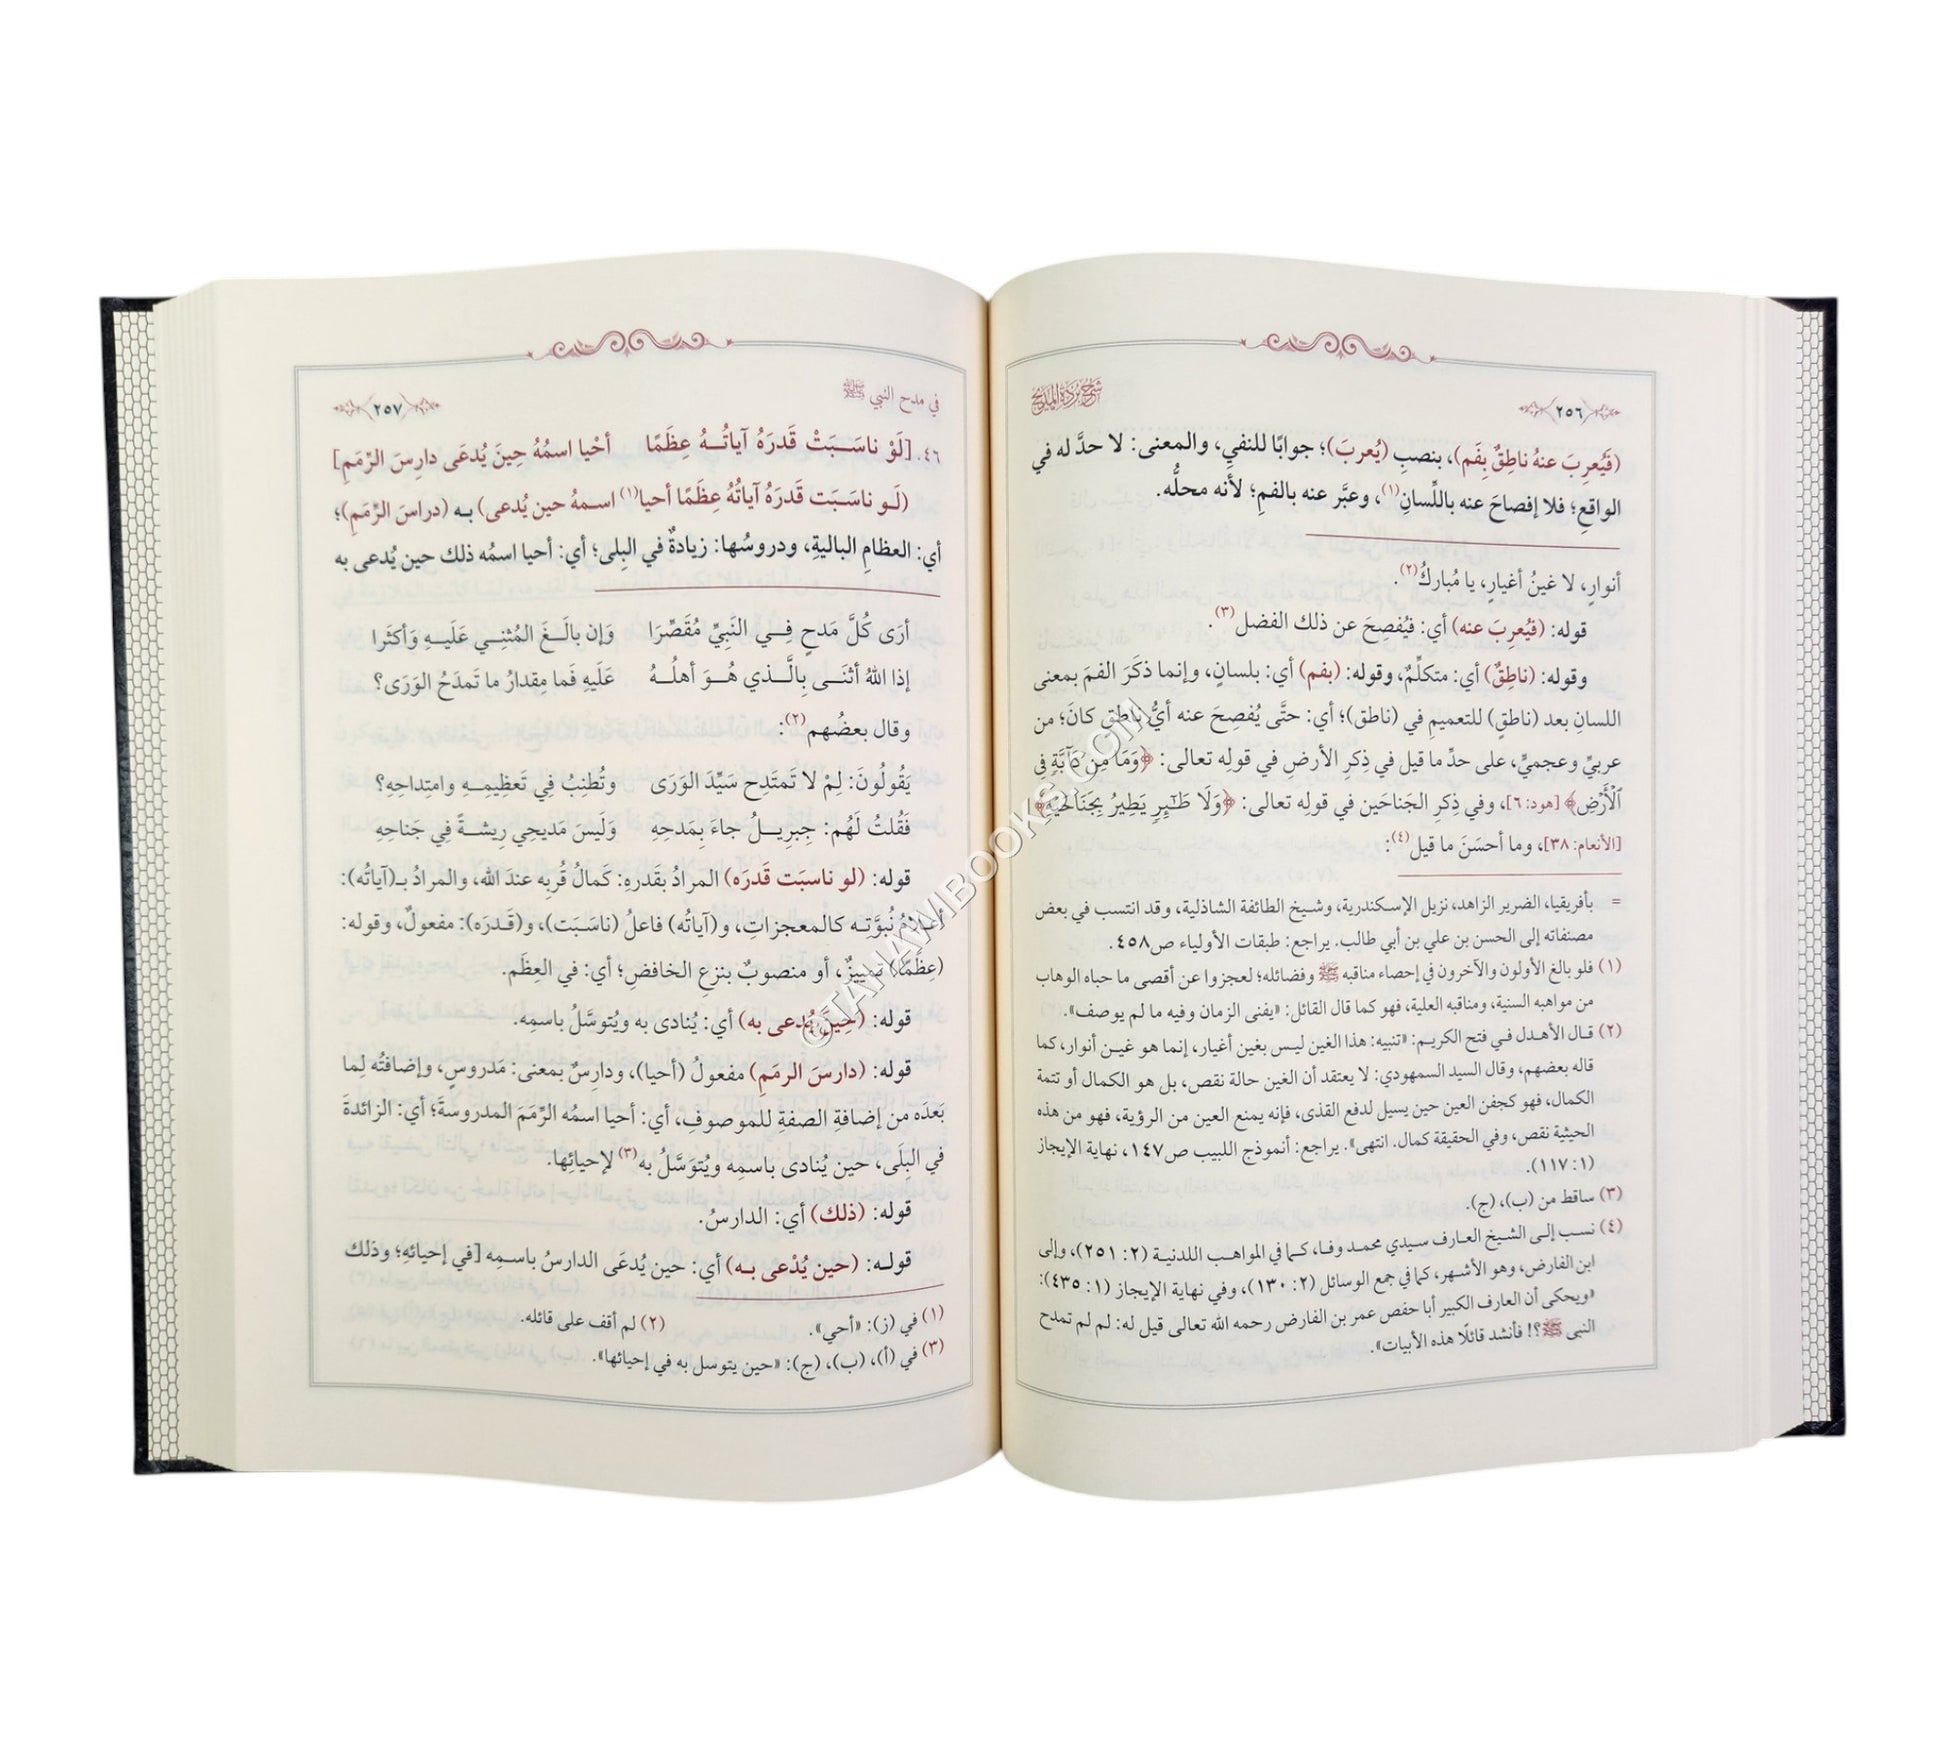 شرح بردة المديح
٢٥٦
(فَيُعرِبَ عنهُ ناطِقٌ بِفَم)، بنصبِ (يُعربَ)؛ جوابًا للنفي، والمعنى: لا حدَّ له في
الواقع؛ فلا إفصاحَ عنه باللِّسانِ(١)، وعبَّر عنه بالفمِ؛ لأنه محلُّه.
أنوارٍ، لا غينُ أغيار، يا مُباركُ(٢).
قوله: (فيُعرِبَ عنه) أي: فيُفصِحَ عن ذلك الفضل(٣).
وقوله: (ناطِقٌ) أي: متكلِّمٌ، وقوله: (بفم) أي: بلسانٍ، وإنما ذكَرَ الفمَ بمعنى
اللسانِ بعد (ناطقٍ) للتعميمِ في (ناطق)؛ أي: حتَّى يُفصِحَ عنه أيُّ ناطقٍ كانَ؛ من
عربيٍّ وعجميٍّ، على حدِّ ما قيل في ذِكرِ الأرضِ في قولِه تعالى: ﴿وَمَا مِن دَآبَّةٍ فِي
ٱلْأَرْضِ﴾ [هود: ٦]، وفي ذِكرِ الجَناحَين في قولِه تعالى: ﴿وَلَا طَٰٓئِرٍ يَطِيرُ بِجَنَاحَيْهِ﴾
[الأنعام: ٣٨]، وما أحسَنَ ما قيل(٤):
= بأفريقيا، الضرير الزاهد، نزيل الإسكندرية، وشيخ الطائفة الشاذلية، وقد انتسب في بعض
مصنفاته إلى الحسن بن علي بن أبي طالب. يراجع: طبقات الأولياء ص٤٥٨.
(١) فلو بالغ الأولون والآخرون في إحصاء مناقبه ﷺ وفضائله؛ لعجزوا عن أقصى ما حباه الوهاب
من مواهبه السنية، ومناقبه العلية، فهو كما قال القائل: «يفنى الزمان وفيه ما لم يوصف».
(٢) قال الأهدل في فتح الكريم: «تنبيه: هذا الغين ليس بغين أغيار، إنما هو غين أنوار، كما
قاله بعضهم، وقال السيد السمهودي: لا يعتقد أن الغين حالة نقص، بل هو الكمال أو تتمة
الكمال، فهو كجفن العين حين يسيل لدفع القذى، فإنه يمنع العين من الرؤية، فهو من هذه
الحيثية نقص، وفي الحقيقة كمال. انتهى». يراجع: أنموذج اللبيب ص١٤٧، نهاية الإيجاز
(١: ١١٧).
(٣) ساقط من (ب)، (ج).
(٤) نسب إلى الشيخ العارف سيدي محمد وفا، كما في المواهب اللدنية (٢: ٢٥١)، وإلى
ابن الفارض، وهو الأشهر، كما في جمع الوسائل (٢: ١٣٠)، وفي نهاية الإيجاز (١: ٤٣٥):
«ويحكى أن العارف الكبير أبا حفص عمر بن الفارض رحمه الله تعالى قيل له: لم لم تمدح
النبي ﷺ؟! فأنشد قائلًا هذه الأبيات».
في مدح النبي ﷺ
٢٥٧
٤٦. [لَوْ ناسَبَتْ قَدرَهُ آياتُهُ عِظَمًا أحْيا اسمُهُ حِينَ يُدعَى دارِسَ الرِّمَمِ]
(لَو ناسَبَت قَدرَهُ آياتُهُ عِظَمًا أحيا(١) اسمهُ حين يُدعى) به (دراسَ الرِّمَمِ)؛
أي: العظامِ الباليةِ، ودروسُها: زيادةٌ في البِلى؛ أي: أحيا اسمُه ذلك حين يُدعى به
أرَى كُلَّ مَدحٍ فِي النَبِيِّ مُقَصِّرَا وَإن بالَغَ المُثنِي عَلَيهِ وَأكثَرا
إذا اللهُ أثنَى بِالَّذي هُوَ أهلُهُ عَلَيهِ فَما مِقدارُ ما تَمدَحُ الوَرَى؟
وقال بعضُهم(٢):
يَقُولُونَ: لِمْ لا تَمتَدِح سَيِّدَ الوَرَى وتُطنِبُ فِي تَعظِيمِهِ وامتِداحِهِ؟
فَقُلتُ لَهُم: جِبرِيلُ جاءَ بِمَدحِهِ وَلَيسَ مَديحِي رِيشةً في جَناحِهِ
قوله: (لو ناسبَت قَدرَه) المرادُ بقَدرهِ: كَمالُ قُربِه عندَ الله، والمراد بـ(آياتُه):
أعلامُ نُبوَّتِه كالمعجزاتِ، و(آياتُه) فاعلُ (ناسَبَت)، و(قَدرَه): مفعولٌ، وقوله:
(عِظَمًا) تمييزٌ، أو منصوبٌ بنزعِ الخافضِ؛ أي: في العِظَم.
قوله: (حِينَ يُدعى به) أي: يُنادى به ويُتوسَّلُ باسمِه.
قوله: (دارسَ الرمَمِ) مفعولُ (أحيا)، ودارِسٌ بمعنى: مَدروسٍ، وإضافتُه لِما
بَعدَه من إضافةِ الصفةِ للموصوفِ، أي: أحيا اسمُه الرِّمَمَ المدروسةَ؛ أي: الزائدةَ
في البِلَى، حين يُنادى باسمِه ويُتوَسَّلُ به(٣) لإحيائِها.
قوله: (ذلك) أي: الدارسُ.
قوله: (حين يُدْعى به) أي: حين يُدعَى الدارسُ باسمِه [في إحيائهِ؛ وذلك
(١) في (ز): «أحي». (٢) لم أقف على قائله.
(٣) في (أ)، (ب)، (ج): «حين يتوسل به في إحيائها».
©TAHAWIBOOKS.COM